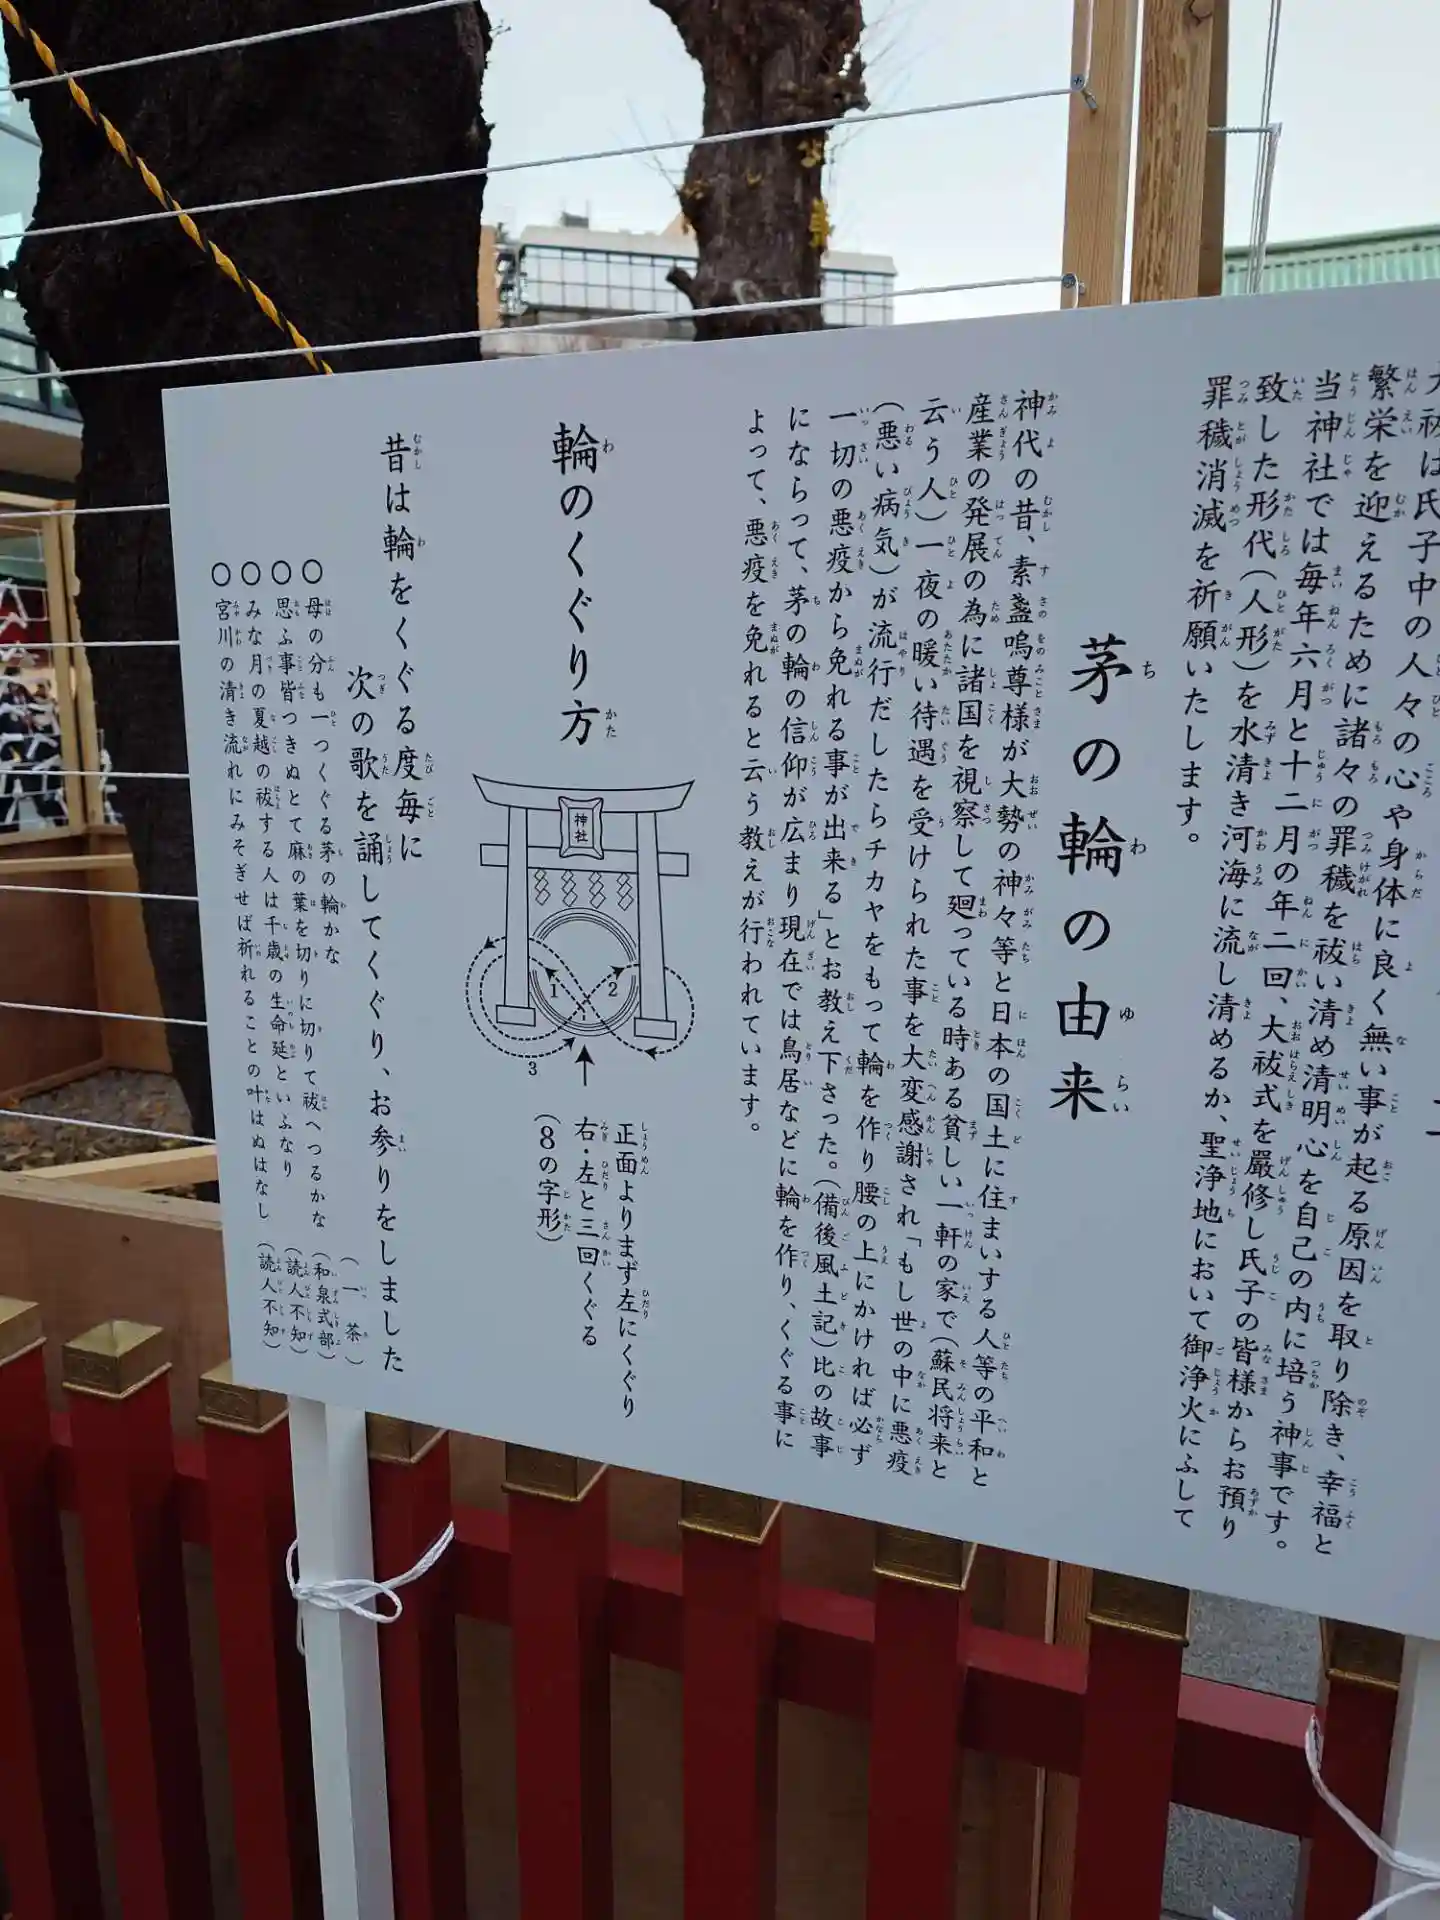 大祓は氏子中の人々の心や身体に良く無い事が起る原因を取り除き、幸福と
繁栄を迎えるために諸々の罪穢を祓い清め清明心を自己の内に培う神事です。
当神社では毎年六月と十二月の年二回、大祓式を厳修し氏子の皆様からお預り
致した形代(人形)を水清き河海に流し清めるか、聖浄地において御浄火にふして
罪穢消滅を祈願いたします。
茅の輪の由来
神代の昔、素盞嗚尊様が大勢の神々等と日本の国土に住まいする人等の平和と
産業の発展の為に諸国を視察して廻っている時ある貧しい一軒の家で(蘇民将来と
云う人)一夜の暖い待遇を受けられた事を大変感謝され「もし世の中に悪疫
(悪い病気)が流行だしたらチカヤをもって輪を作り腰の上にかければ必ず
一切の悪疫から免れる事が出来る」とお教え下さった。(備後風土記)比の故事
にならって、茅の輪の信仰が広まり現在では鳥居などに輪を作り、くぐる事に
よって、悪疫を免れると云う教えが行われています。
輪のくぐり方
神社
1
2
3
正面よりまず左にくぐり
右・左と三回くぐる
(8の字形)
昔は輪をくぐる度毎に
次の歌を誦してくぐり、お参りをしました
〇母の分も一つくぐる茅の輪かな (一茶)
〇思ふ事皆つきぬとて麻の葉を切りに切りて祓へつるかな (和泉式部)
〇みな月の夏越の祓する人は千歳の生命延といふなり (読人不知)
〇宮川の清き流れにみそぎせば祈れることの叶はぬはなし (読人不知)